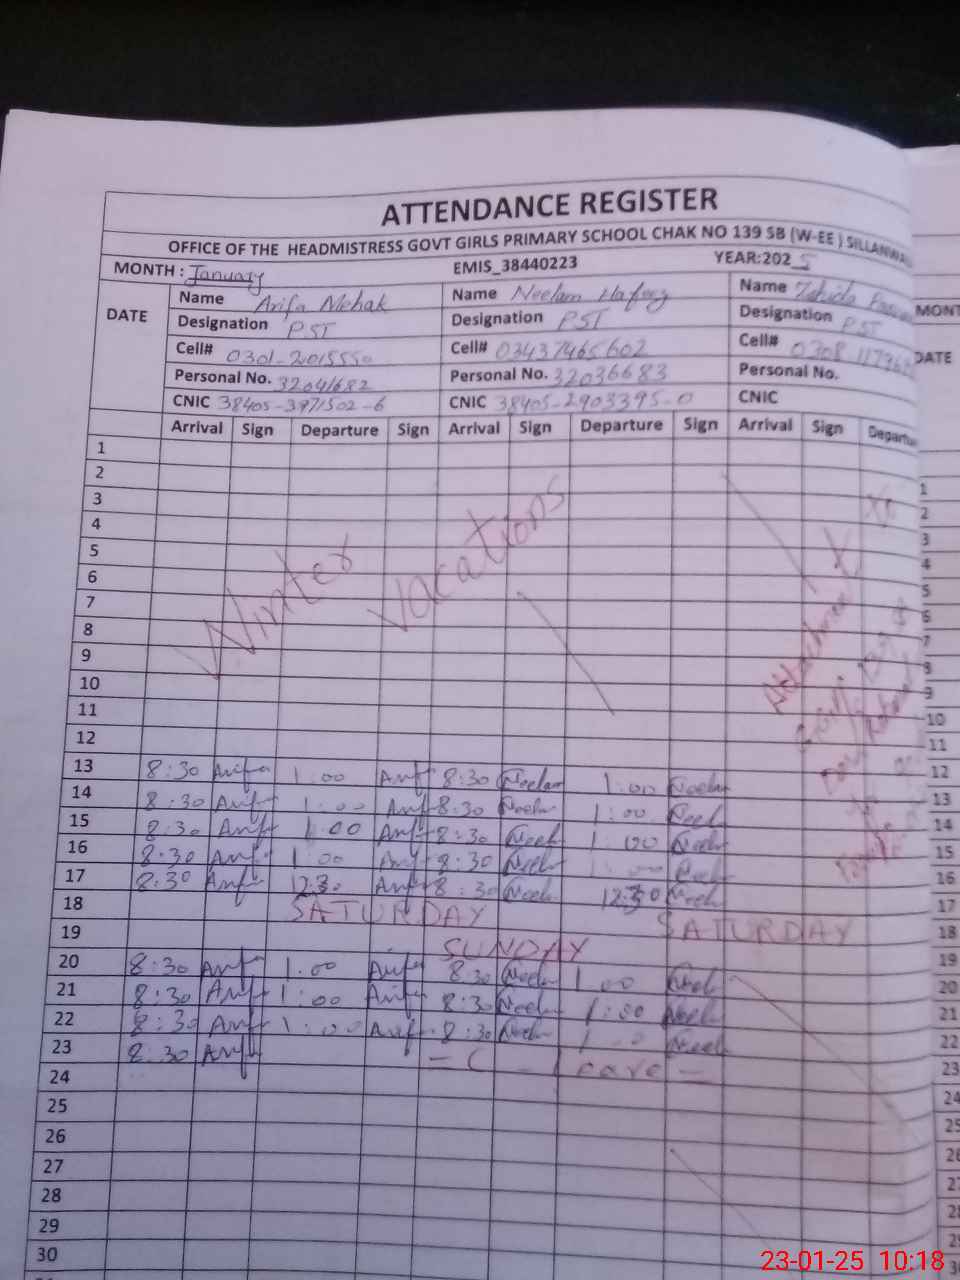 ATTENDANCE REGISTER
OFFICE OF THE HEADMISTRESS GOVT GIRLS PRIMARY SCHOOL CHAK NO 139 SB (W-EE) SILLANWALI
MONTH : January EMIS_38440223 YEAR:2025
DATE Name Arifa Mehak Name Neelam Hafeez Name
Designation PST Designation PST Designation PST
Cell# 0301-2015550 Cell# 03437465602 Cell# 0308
Personal No. 32041682 Personal No. 32036683 Personal No.
CNIC 38405-3971502-6 CNIC 38405-2903395-0 CNIC
Arrival Sign Departure Sign Arrival Sign Departure Sign Arrival Sign Departu
1
2
3
4
5
6
7
8
9
10
11
12
Winter Vacations
Attachment
13 8:30 Arifa 1:00 Arif 8:30 Neelam 1:00 Neelam
14 8:30 Arif 1:00 Arif 8:30 Neelm 1:00 Neelm
15 8:30 Arif 1:00 Arif 8:30 Neelm 1:00 Neelm
16 8:30 Arif 1:00 Arif 8:30 Neelm 1:00 Neelm
17 8:30 Arif 12:30 Arif 8:30 Neelm 12:30 Neelm
18 SATURDAY SATURDAY
19 SUNDAY
20 8:30 Arif 1:00 Arif 8:30 Neelm 1:00 Neelm
21 8:30 Arif 1:00 Arif 8:30 Neelm 1:00 Neelm
22 8:30 Arif 1:00 Arif 8:30 Neelm 1:00 Neelm
23 8:30 Arif - C - Leave -
24
25
26
27
28
29
30
MONT
DATE
1
2
3
4
5
6
7
8
9
10
11
12
13
14
15
16
17
18
19
20
21
22
23
24
25
26
27
23-01-25 10:18